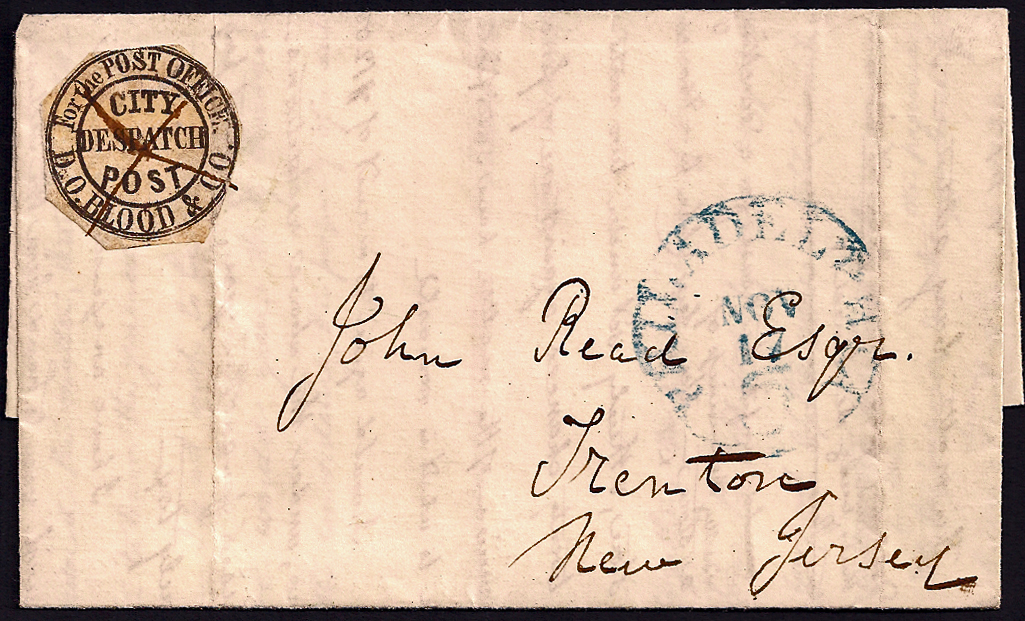 For the POST OFFICE.
CITY
DESPATCH
POST
D.O. BLOOD & CO.
PHILADELPHIA
NOV
17
John Read Esqr.
Trenton
New Jersey